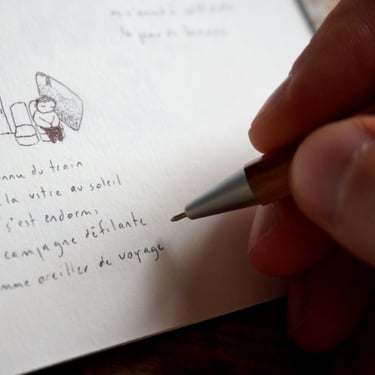 la peau de
nnu du train
la vitre au soleil
s'est endormi
campagne défilante
mme oreiller de voyage